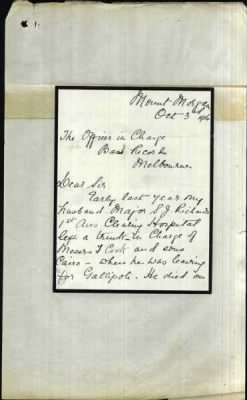 Mount Morgan
Oct 3rd 1916
The Officer in Charge
Base Records
Melbourne
Dear Sir
Early last year my
husband Major S J Richards
1st Aus Clearing Hospital
left a trunk in Charge of
Messrs T Cook and sons
Cairo - when he was leaving
for Gallipoli. He died on